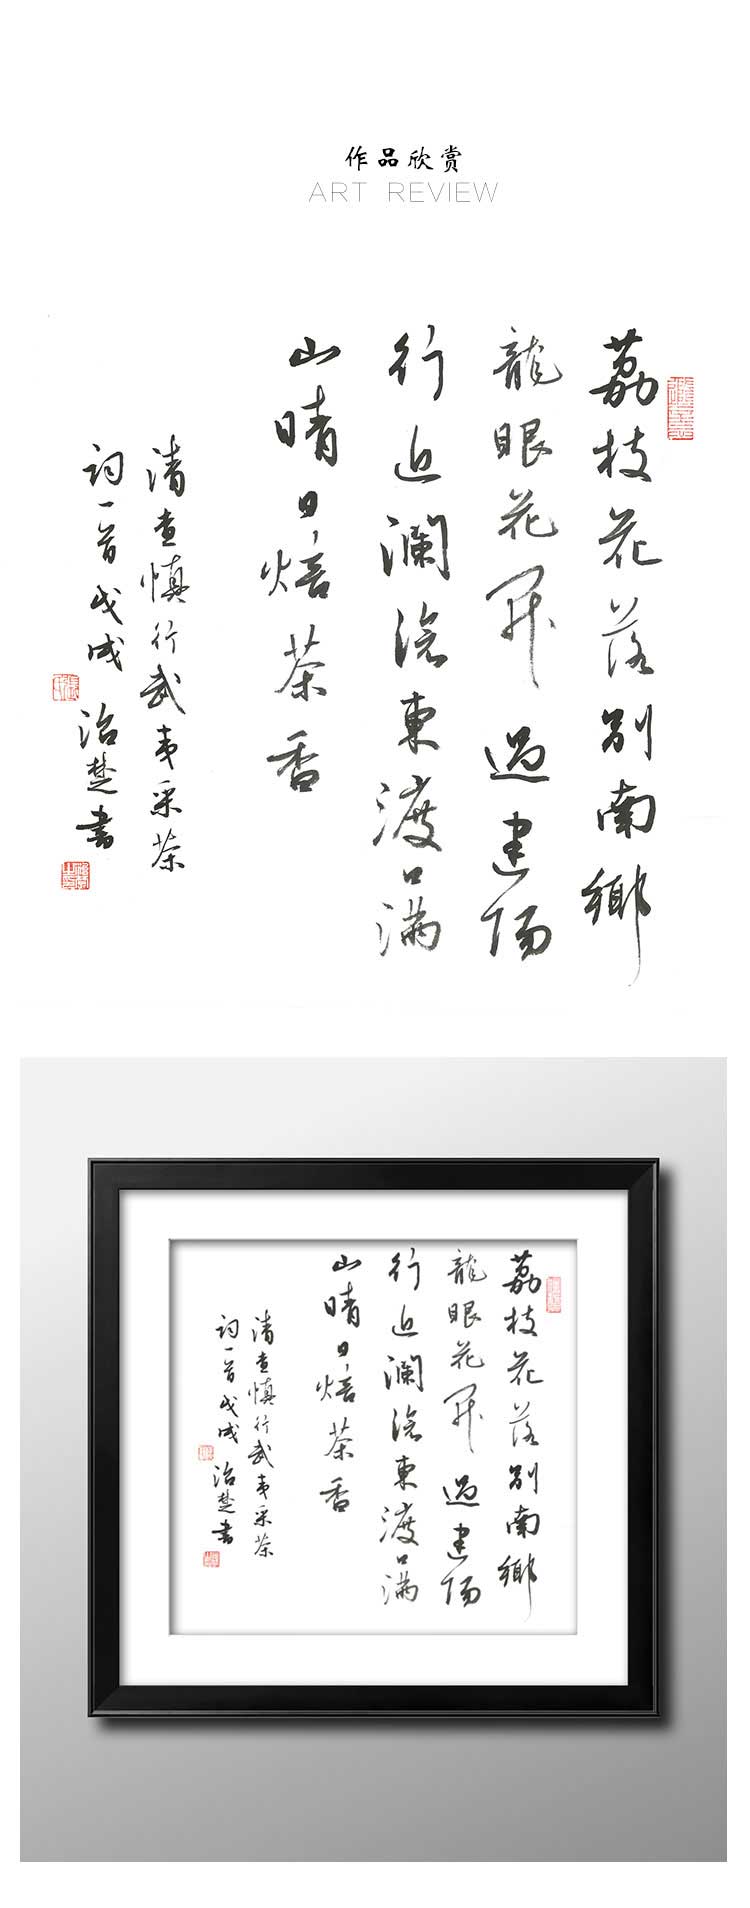 作品欣赏
ART REVIEW
荔枝花落别南鄉
龍眼花开過建阳
行近澜沧東渡口满
山晴日焙茶香
清查慎行武夷采茶
词一首戊戌 治楚書
荔枝花落别南鄉
龍眼花开過建阳
行近澜沧東渡口满
山晴日焙茶香
清查慎行武夷采茶
词一首戊戌 治楚書